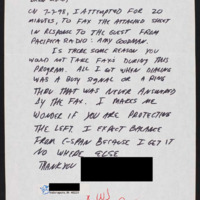 ON 7-2-98, I ATTEMPTED FOR 20
MINUTES, TO FAX THE ATTACHED SHEET
IN RESPONSE TO THE GUEST FROM
PACIFICA RADIO: AMY GOODMAN.
IS THERE SOME REASON YOU
WOULD NOT TAKE FAX'S DURING THIS
PROGRAM. ALL I GOT WHEN DIALING
WAS A BUSY SIGNAL OR A RING
THRU THAT WAS NEVER ANSWERED
BY THE FAX. IT MAKES ME
WONDER IF YOU ARE PROTECTING
THE LEFT. I EXPECT BALANCE
FROM C-SPAN BECAUSE I GET IT
NO WHERE ELSE
THANK YOU